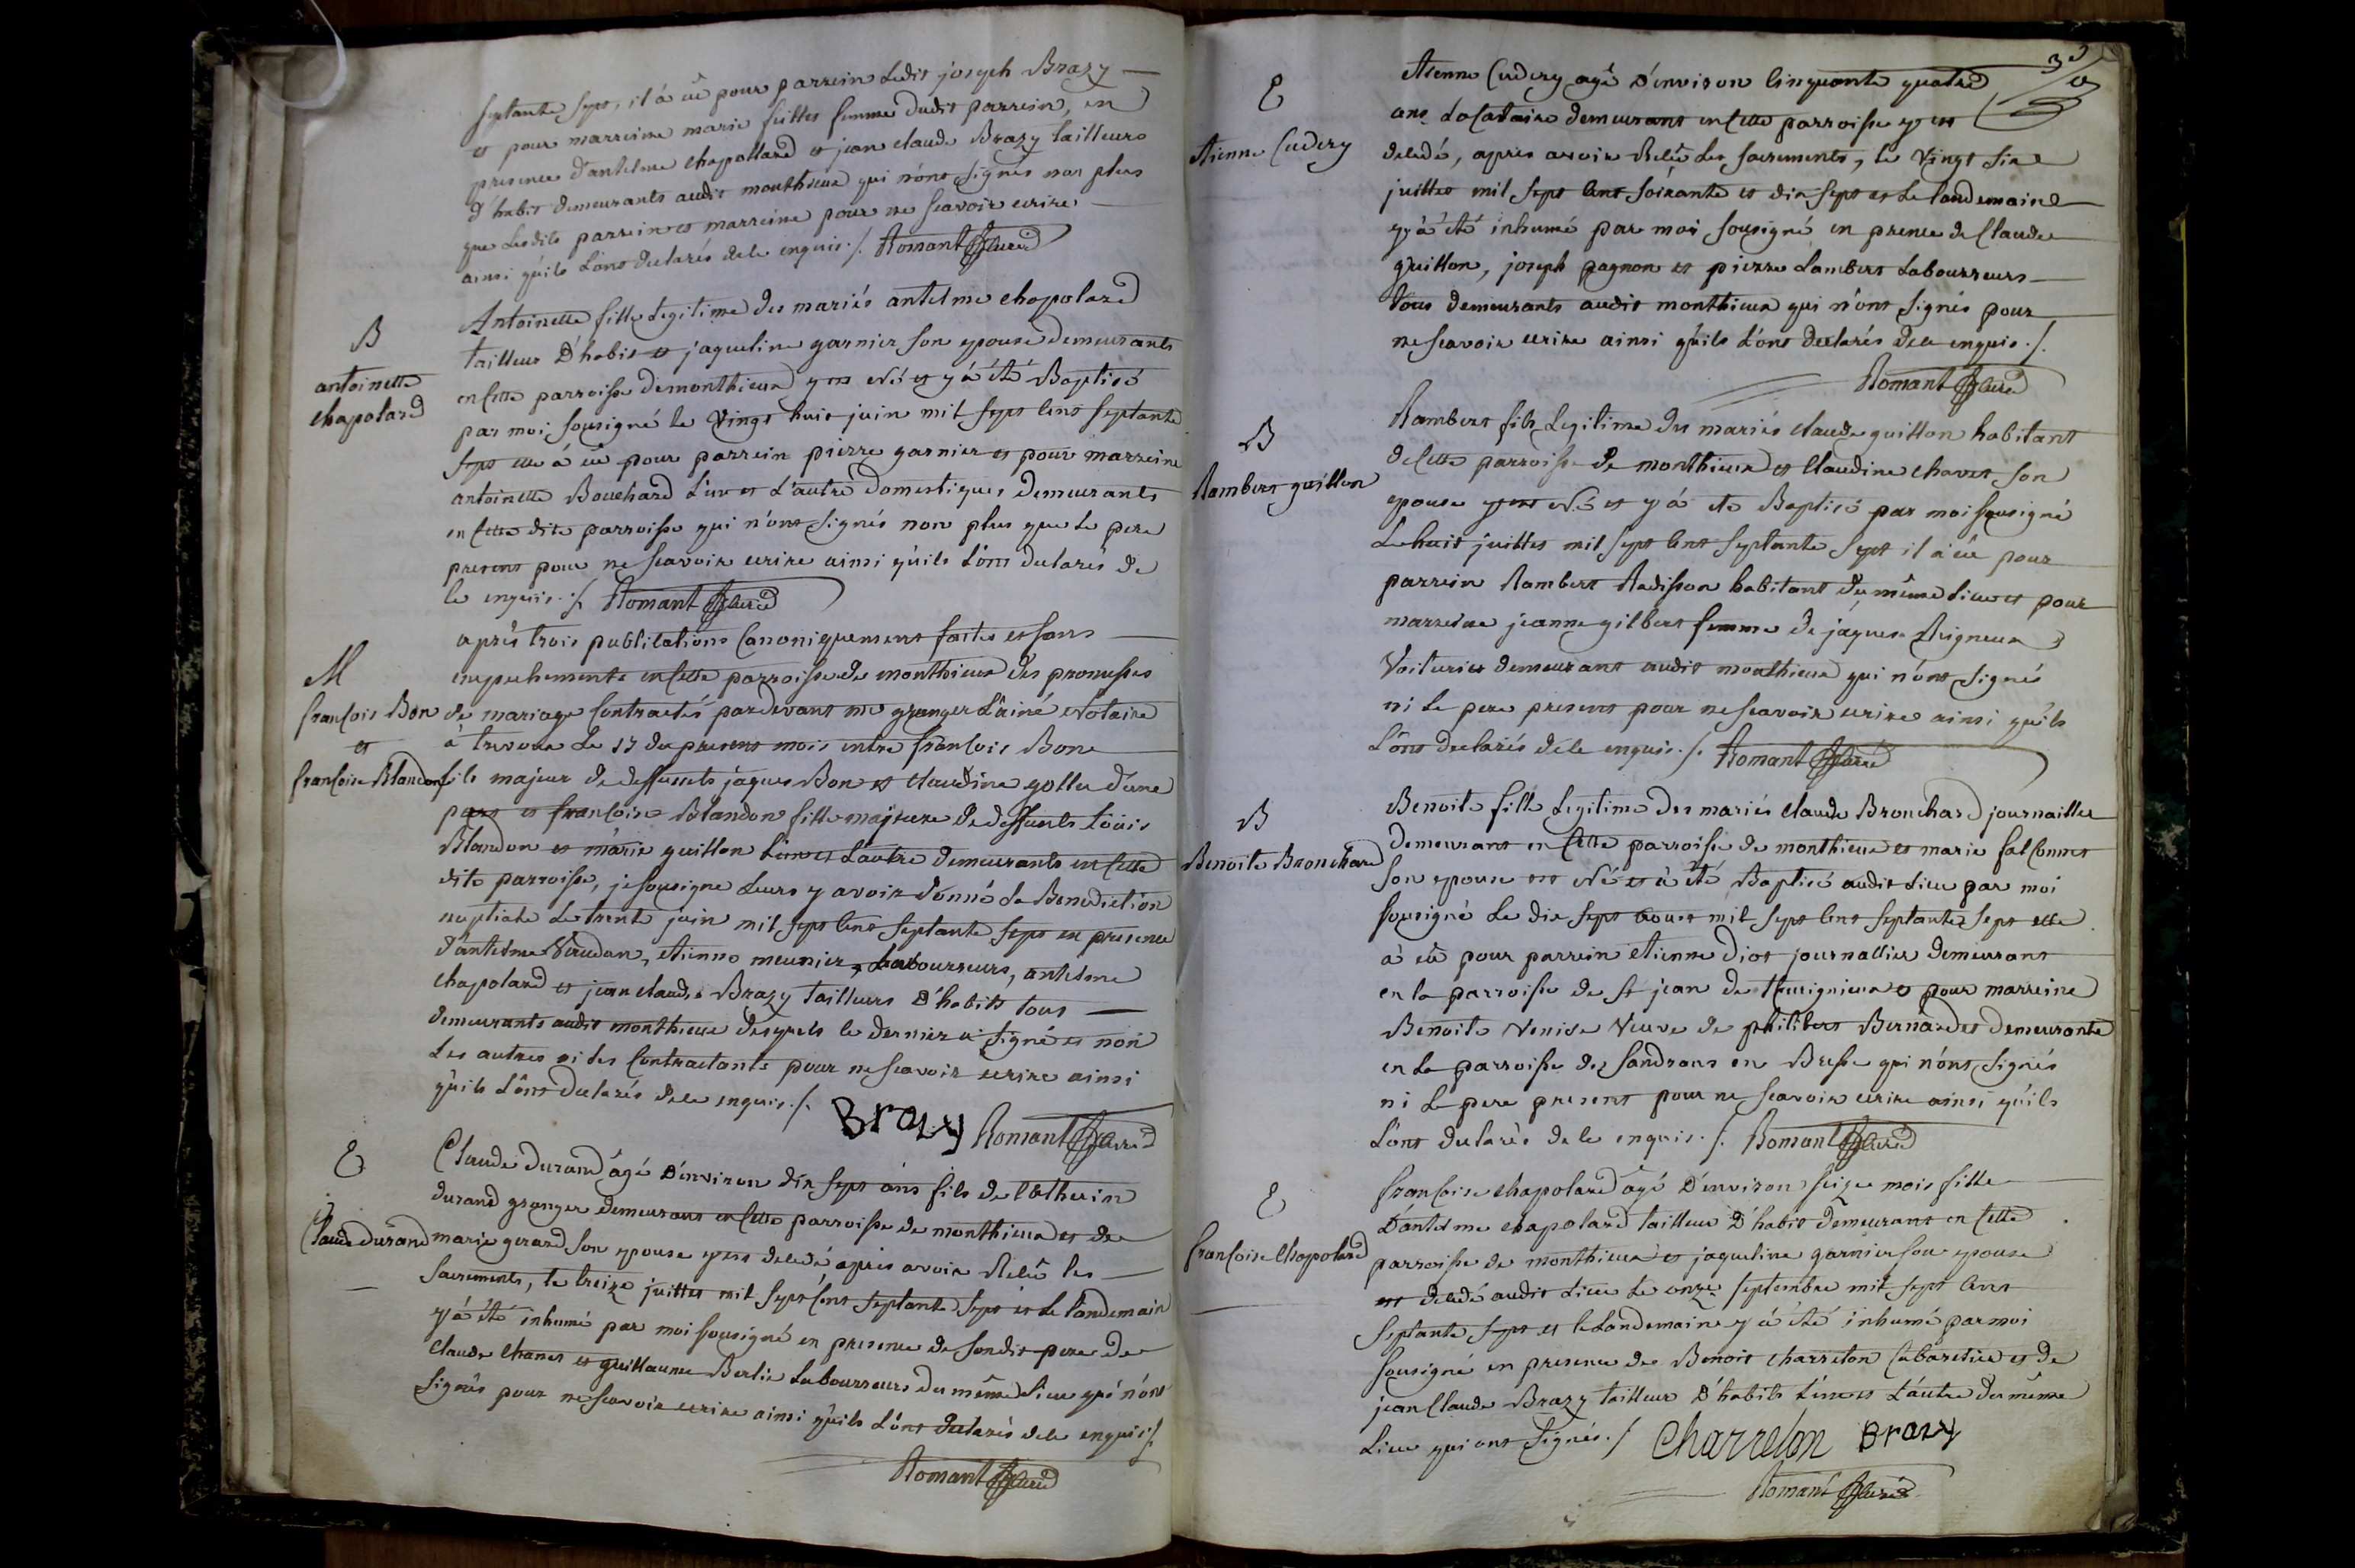 septante sept, il à eü pour parrein Ledit joseph Brazy
et pour marreine marie femme dudit parrein, en
presence d'antelme chapollard et jean claude Brazy tailleurs
d'habit demeurants audit monthieux qui n'ont signés non plus
que Lesdits parrein et marreine pour ne scavoir ecrire
ainsi qu'ils L'ont declarés de le enquis ./. Romant Curé
B
antoinette
chapolard
Antoinette fille Legitime des mariés antelme chapolard
tailleur D'habit et jaqueline garnier son epouse demeurants
en cette parroisse de monthieux y est Né et y à été Baptisé
par moi sousigné le vingt huit juin mil sept cent septante
sept elle à eü pour parrein pierre garnier et pour marreine
antoinette Bouchard L'un et L'autre domestiques demeurants
en cette dite parroisse qui n'ont signés non plus que Le pere
present pour ne scavoir ecrire ainsi qu'ils L'ont declarés de
le enquis ./. Romant Curé
M
francois Bon
et
francoise Blandon
après trois publications Canoniquement faites et sans
empechements en cette parroisse de monthieux des promesses
de mariage Contractés pardevant me granger L'ainé Notaire
à trevoux Le 17 du present mois entre francois Bon
fils majeur de deffunts jaques Bon et claudine gollu d'une
part et francoise Blandon fille majeure de deffunts Loüis
Blandon et marie guillon L'un et L'autre demeurants en cette
dite parroisse, je sousigne Leurs y avoir donné La Benediction
nuptiale Le trente juin mil sept cent septante sept en presence
d'antelme Vaudan, etienne meunier, Labourreurs, antelme
chapolard et jean claude Brazy tailleurs D'habits tous
demeurants audit monthieux desquels le dernier a signé et non
Les autres ni les Contractants pour ne scavoir ecrire ainsi
qu'ils L'ont declarés de le enquis ./. Brazy Romant Curé
E
Claude durand
Claude durand âgé D'environ dix sept ans fils de Catherin
durand granger demeurant en cette parroisse de monthieux et de
marie gerard son epouse y est decedé après avoir Recû les
sacrements, le treize juillet mil sept cent septante sept et Le landemain
y à été inhumé par moi sousigné en presence de sondit pere de
claude chanet et guillaume Berlie Labourreurs du même Lieu qui n'ont
signés pour ne scavoir ecrire ainsi qu'ils L'ont declarés de le enquis ./.
Romant Curé
E
etienne Cudery
etienne Cudery agé D'environ cinquante quatre
ans Locataire demeurant en cette parroisse y est
decedé, après avoir Recû Les sacrements, le vingt six
juillet mil sept cent soixante et dix sept et Le landemain
y à été inhumé par moi sousigné en prence de Claude
guillon, joseph pagnon et pierre Lambert Labourreurs
tous demeurants audit monthieux qui n'ont signés pour
ne scavoir ecrire ainsi qu'ils L'ont declarés de le enquis ./.
Romant Curé
B
Rambert guillon
Rambert fils Legitime des mariés claude guillon habitant
de cette parroisse de monthieux et claudine chavet son
epouse y est Né et y à eté Baptisé par moi sousigné
Le huit juillet mil sept cent septante sept il à eü pour
parrein Rambert Radisson habitant du même Lieu et pour
marreine jeanne gilbert femme de jaques Rigneux
Voiturier demeurant audit monthieux qui n'ont signés
ni Le pere present pour ne scavoir ecrire ainsi qu'ils
L'ont declarés de le enquis ./. Romant Curé
B
Benoite Bronchard
Benoite fille Legitime des mariés claude Bronchard journallier
demeurant en cette parroisse de monthieux et marie falConnet
son epouse est Né et à été Baptisé audit Lieu par moi
sousigné Le dix sept aoust mil sept cent septante sept elle
à eü pour parrein etienne diot journallier demeurant
en la parroisse de st jean de thurignieux et pour marreine
Benoite Venise veuve de philibert Bernardet demeurante
en La parroisse de sandrans en Bresse qui n'ont signés
ni Le pere present pour ne scavoir ecrire ainsi qu'ils
L'ont declarés de le enquis ./. Romant Curé
E
francoise Chapolard
francoise chapolard âgé D'environ seize mois fille
D'antelme chapolard tailleur D'habit demeurant en cette
parroisse de monthieux et jaqueline garnier son epouse
est decedé audit Lieu Le onze septembre mil sept cent
septante sept et le Landemain y à été inhumé par moi
sousigné en presence de Benoit charreton Cabaretier et de
jean Claude Brazy tailleur D'habits L'un et L'autre du même
Lieu qui ont signés ./. Charreton Brazy
Romant Curé